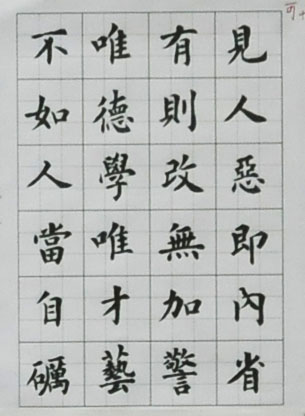 見人惡即內省
有則改無加警
唯德學唯才藝
不如人當自礪